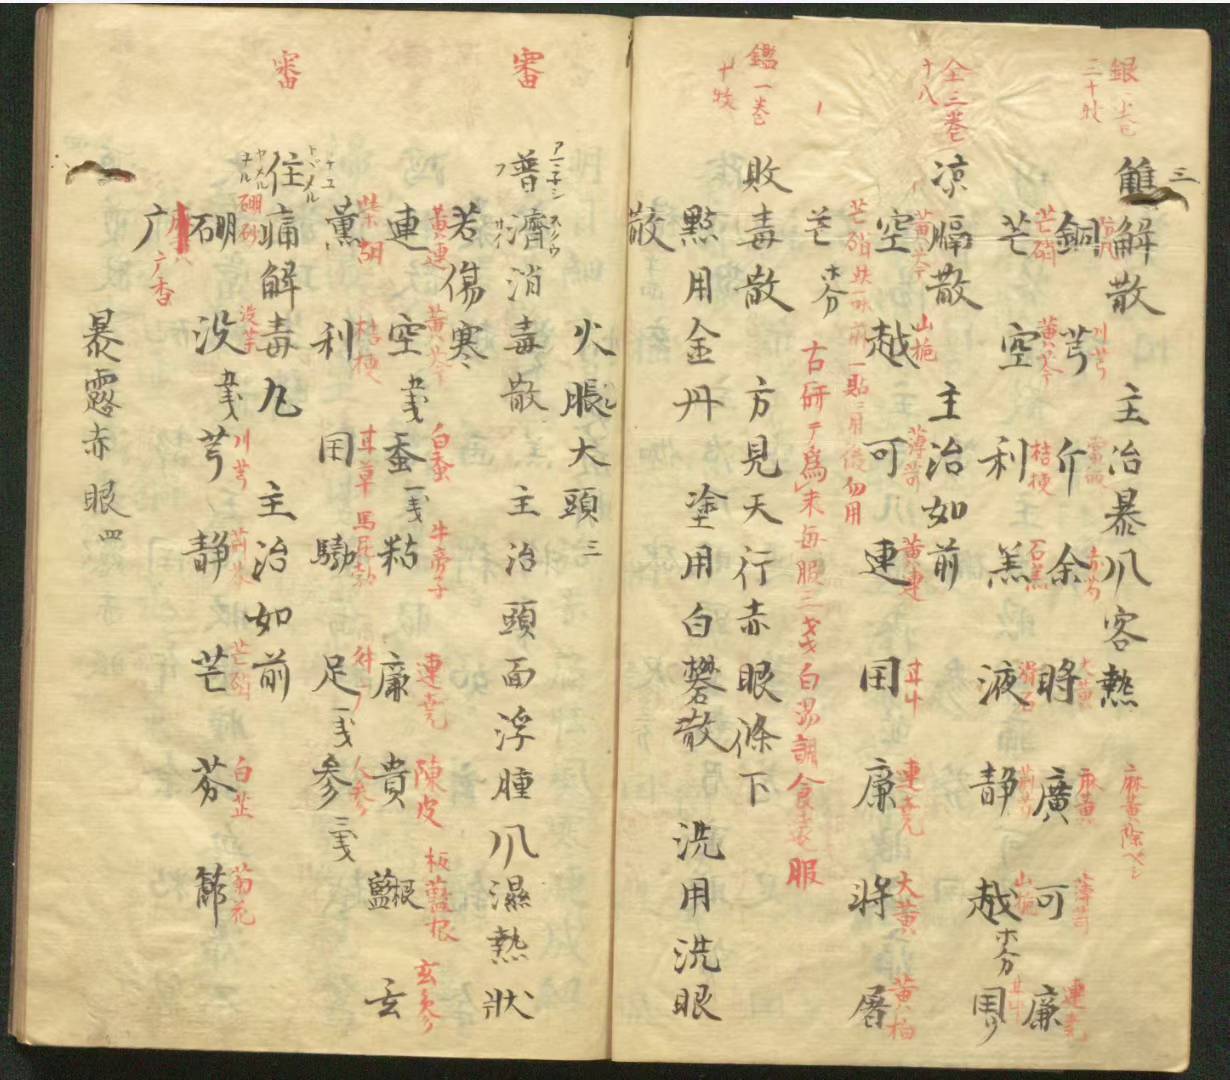 銀一巻
三十枚
三
雙解散 主治暴爪客熱
麻黄除ベシ
銅 芎 介 余 將 廣 可 廉
防風 川芎 當皈 赤芍 大黄 麻黄 薄荷 連翹
芒 空 利 羔 液 静 越 夲分 国
芒硝 黄芩 桔梗 石羔 滑石 荊芥 山梔 甘艸
仝三巻
十八
凉膈散 主治如前
空 越 可 連 国 廉 將 層
黄芩 山梔 薄荷 黄連 甘艸 連翹 大黄 黄柏
芒 夲分
古研テ為末毎服三戔白湯調食遠服
鑑一巻
十枚
敗毒散 方見天行赤眼條下
點用金丹 塗用白礬散 洗用洗眼
散
火脹大頭 三
審
普濟消毒散 主治頭面浮腫爪濕熱状
若傷寒
連 空 戔 蚕 一戔 粘 廉 貴 藍根 玄
黄連 黄芩 白蚕 牛旁子 連翹 陳皮 板藍根 玄参
薫 利 国 勃 足 一戔 参 三戔
柴胡 桔梗 甘草 馬屁勃 升 人参
審
住痛解毒丸 主治如前
硼 没 戔 芎 静 芒 芬 節
硼砂 没薬 川芎 荊芥 芒硝 白芷 菊花
广
广香
暴露赤眼 四